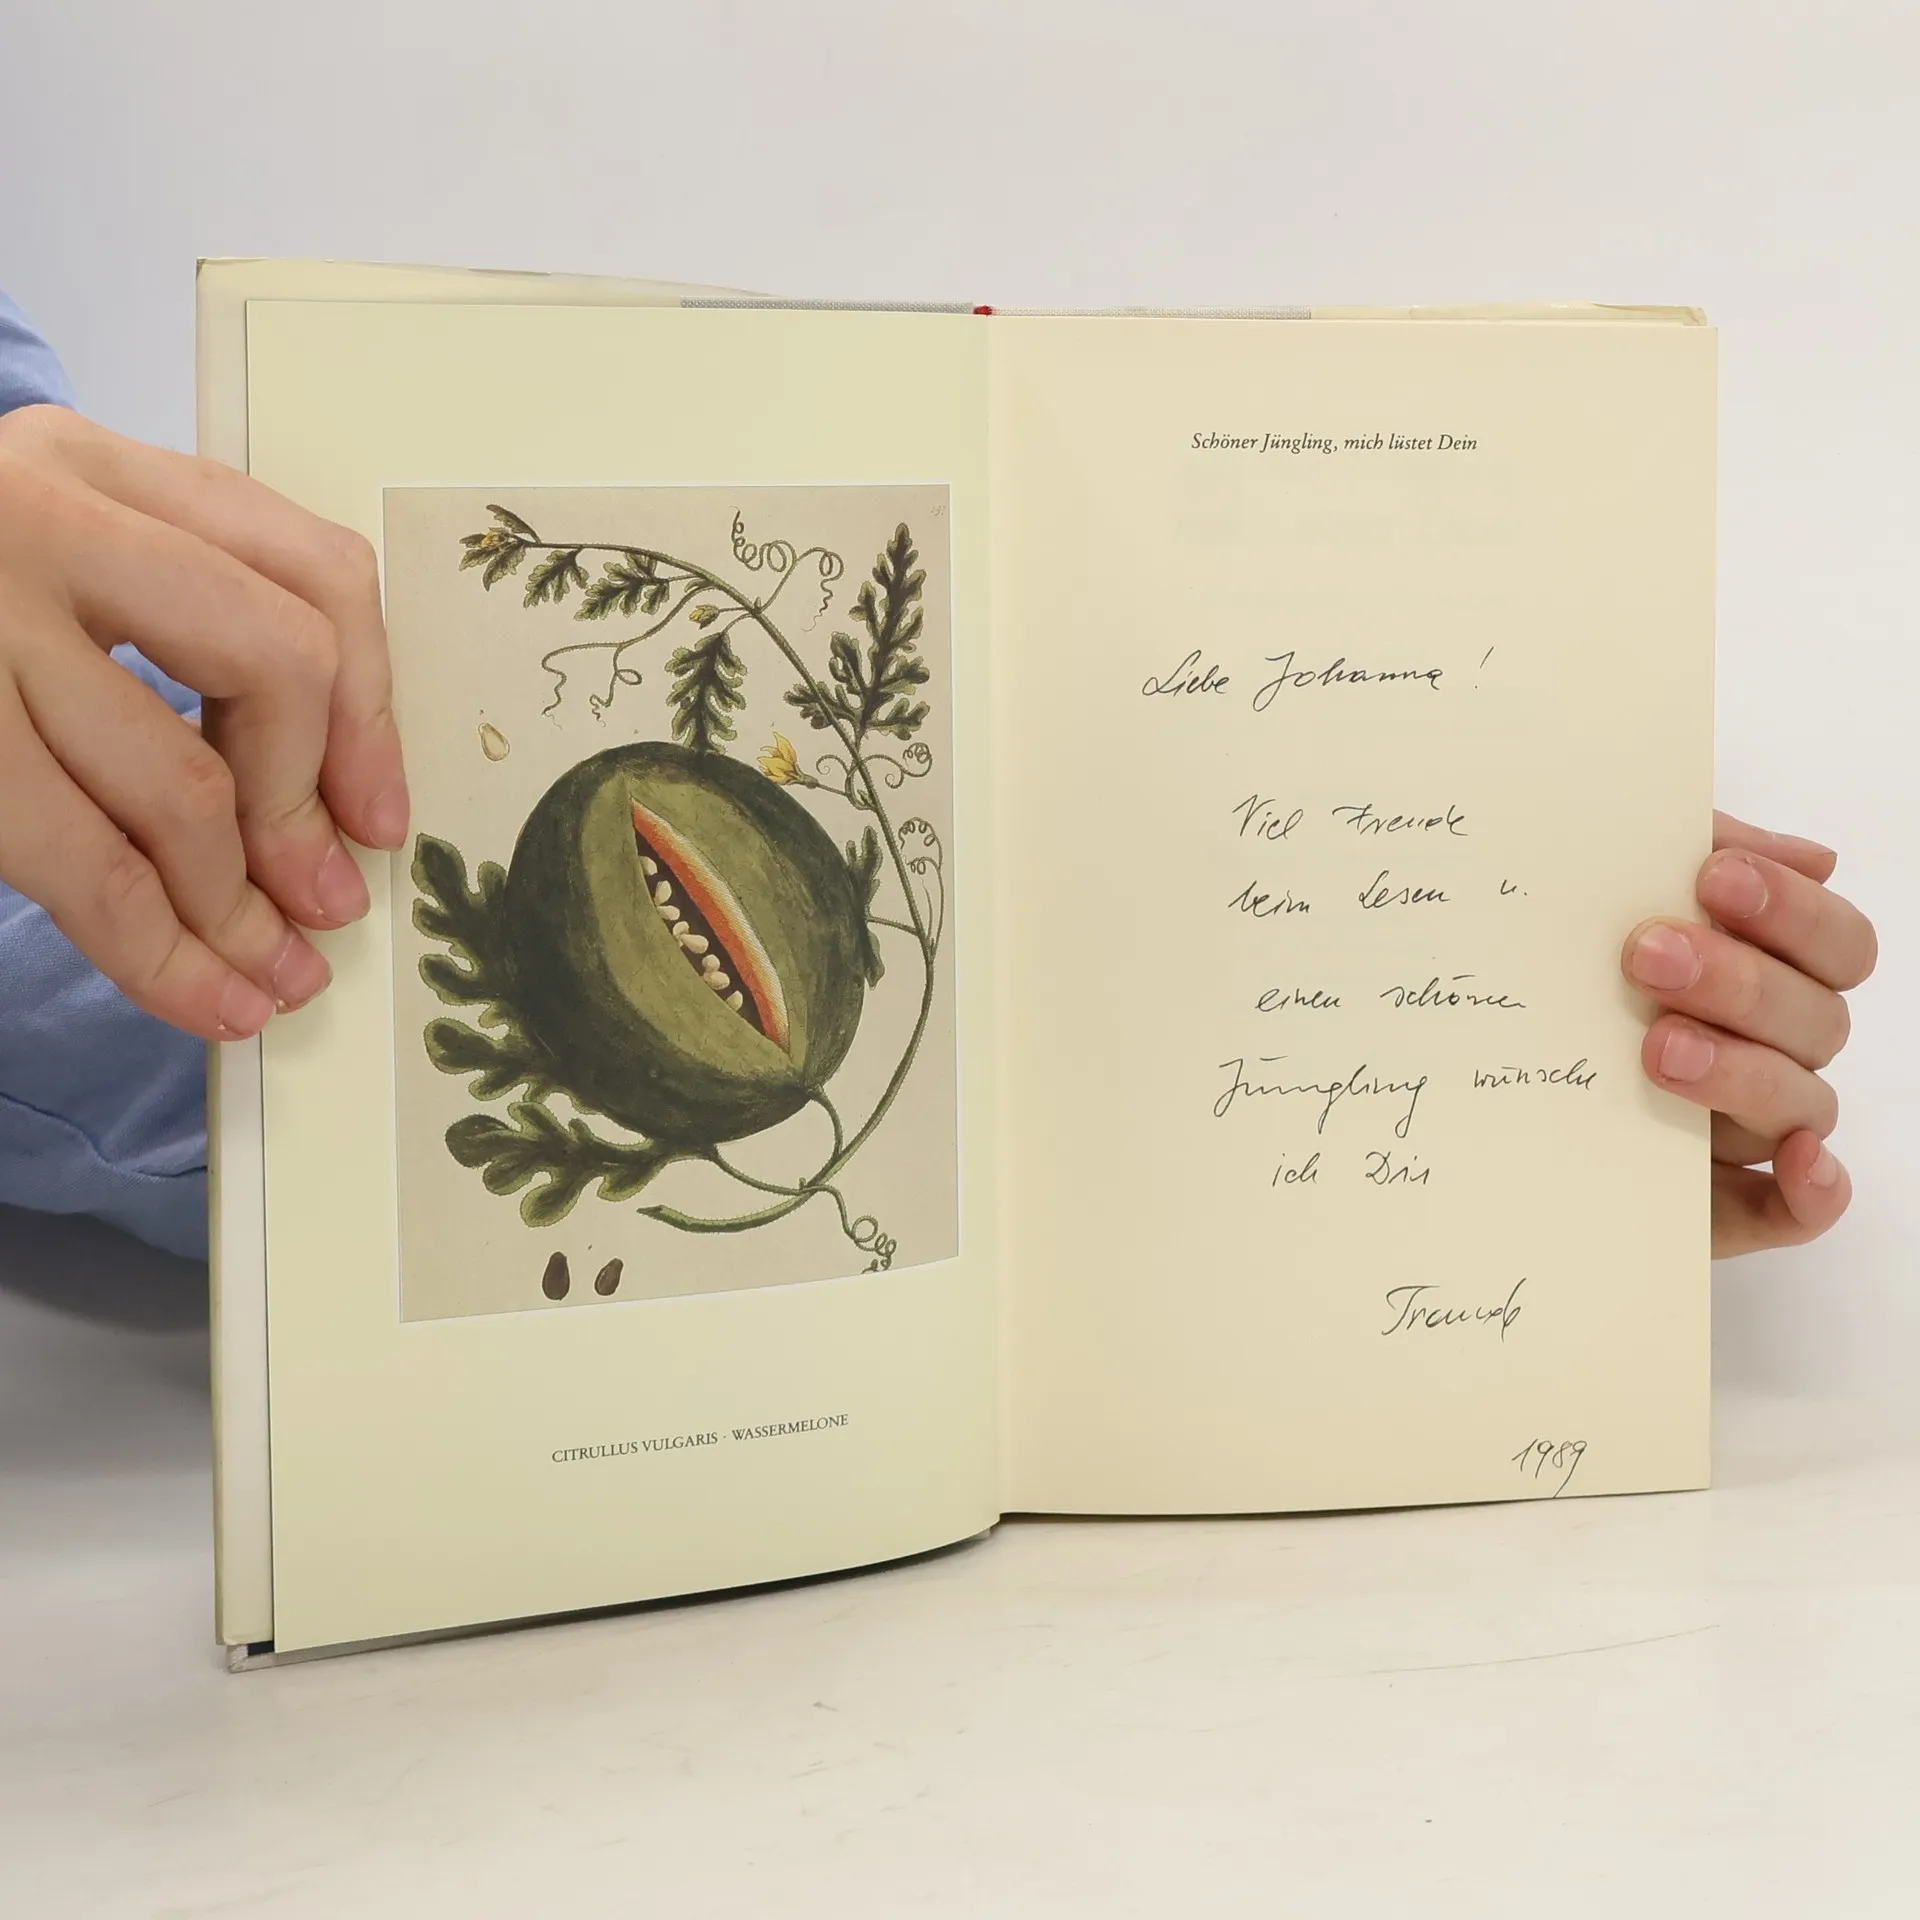 CITRULLUS VULGARIS · WASSERMELONE
Schöner Jüngling, mich lüstet Dein
Liebe Johanna!
Viel Freude
beim Lesen u.
einen schönen
Jüngling wünsche
ich Dir
1989